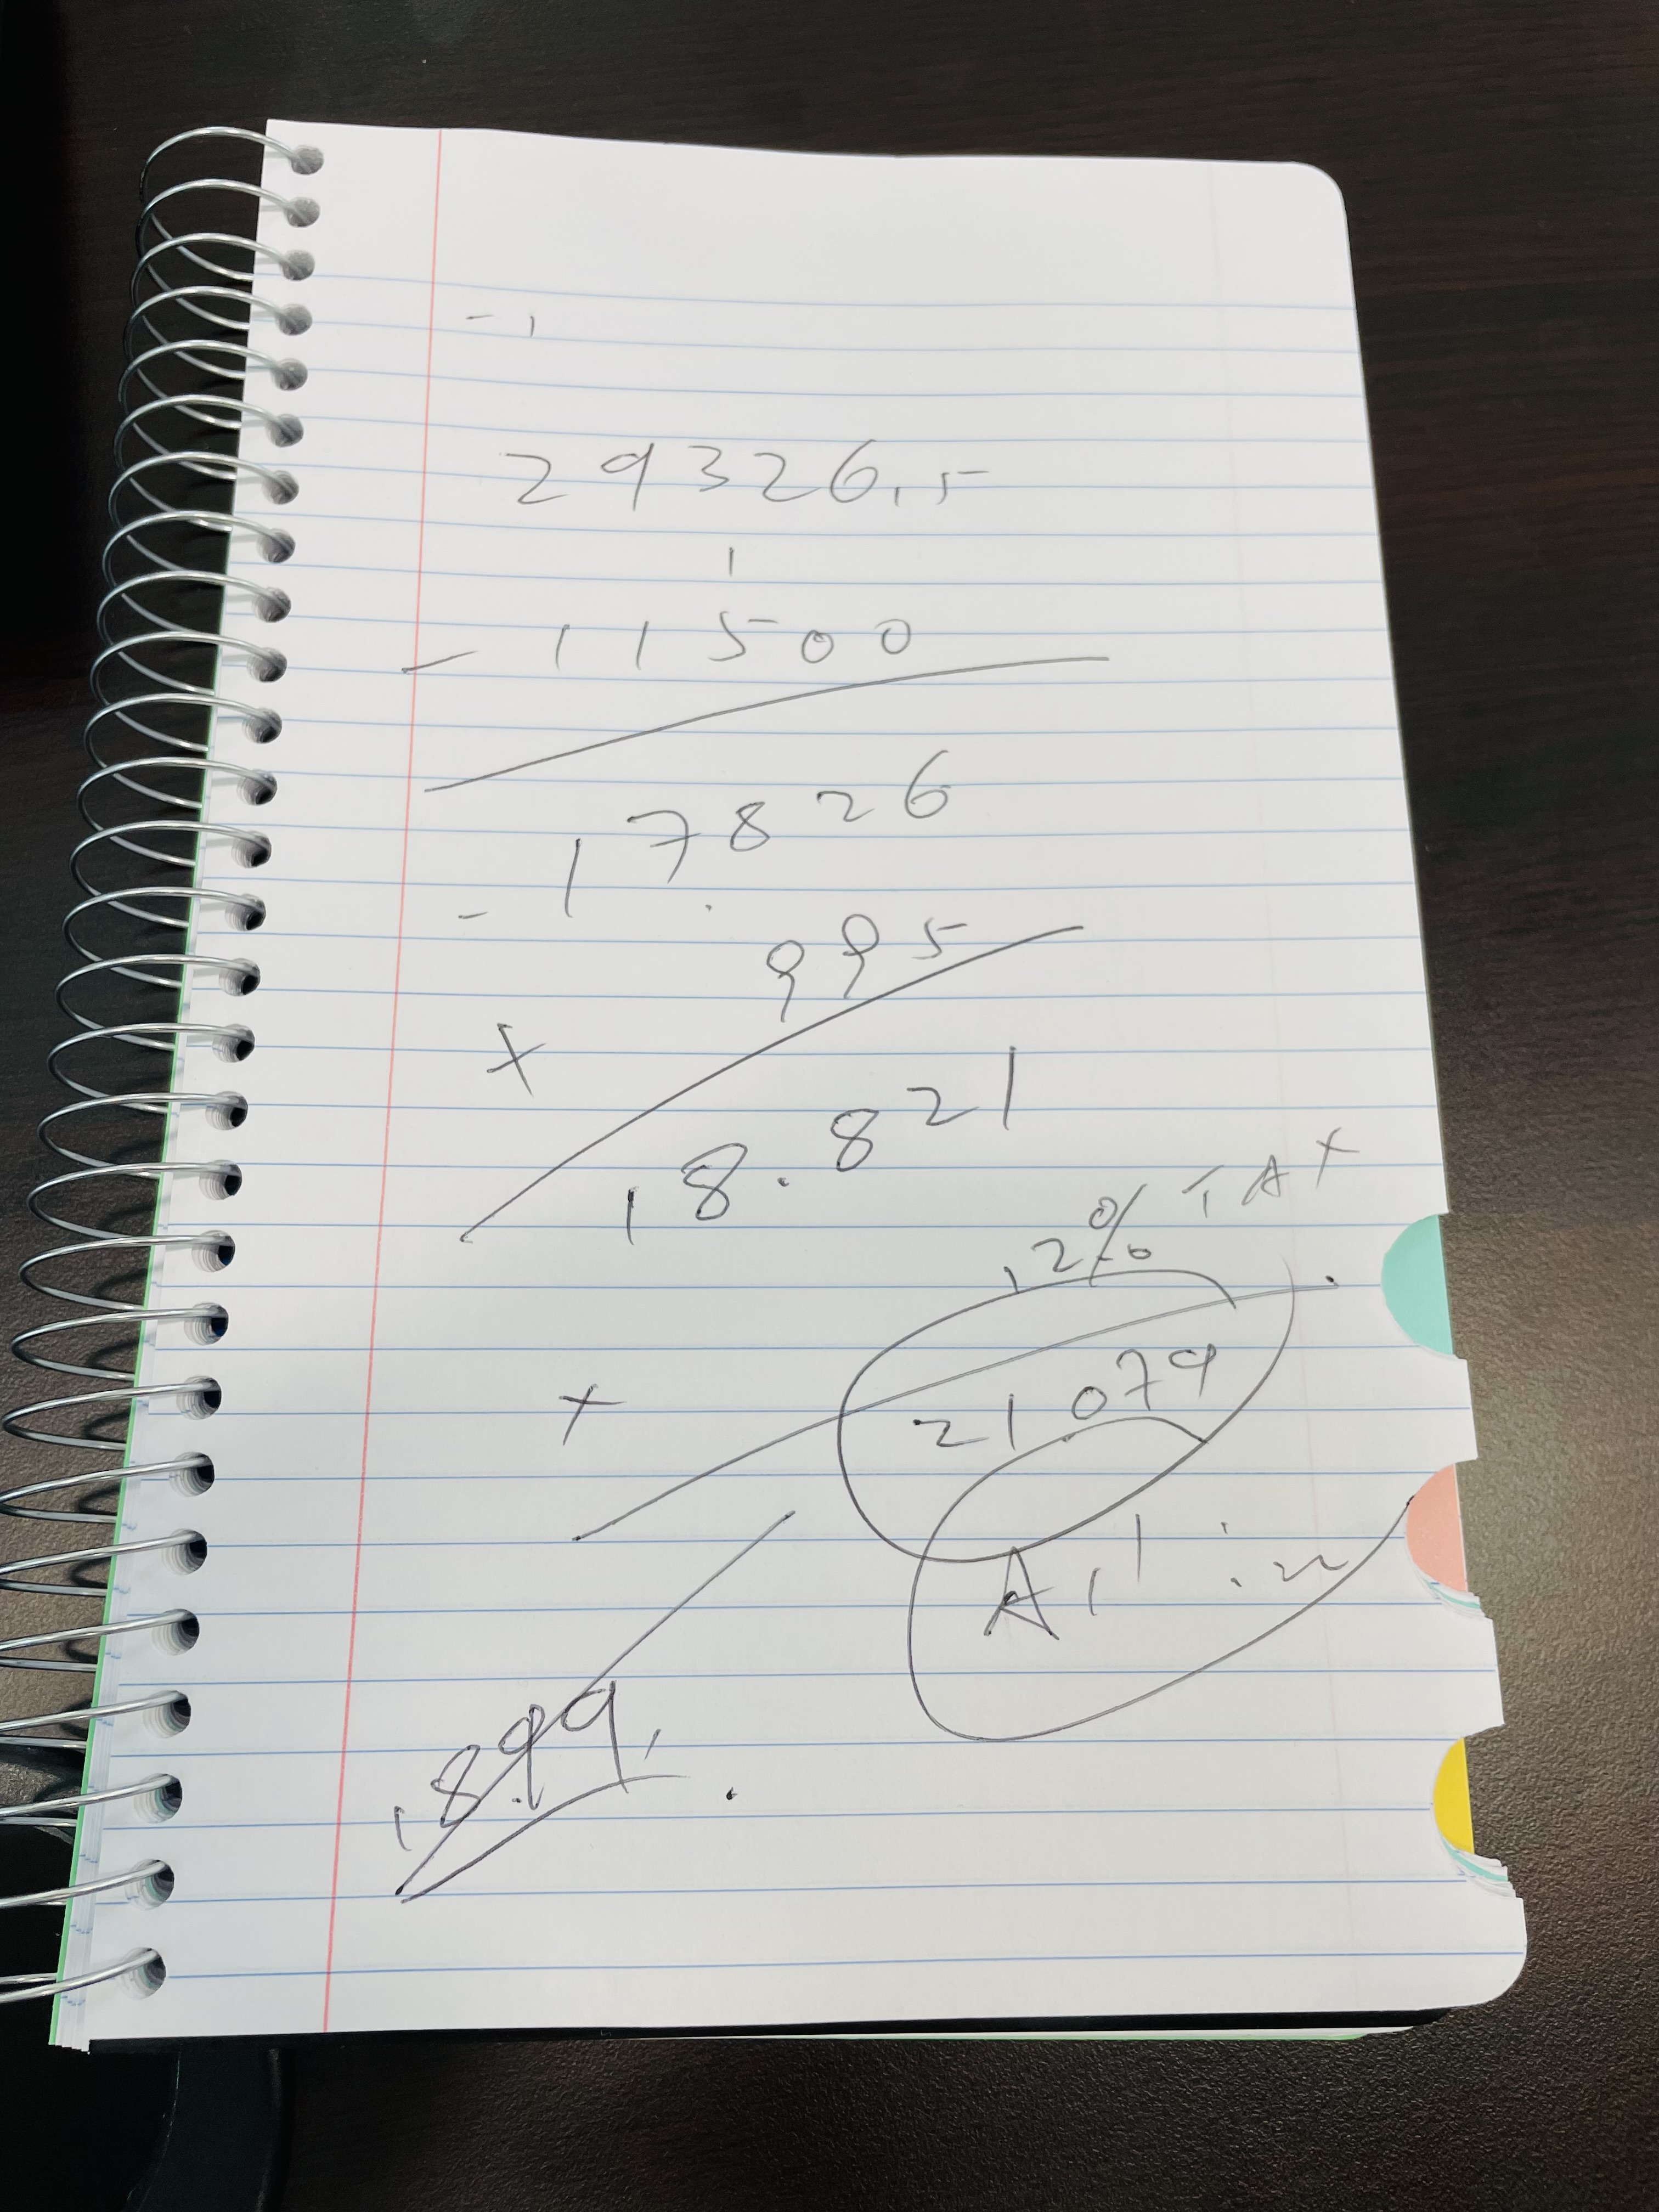 - 1
29326.5
1
- 11500
17826
- 995
+
18.821
12% TAX
+
21.079
All in
1899.